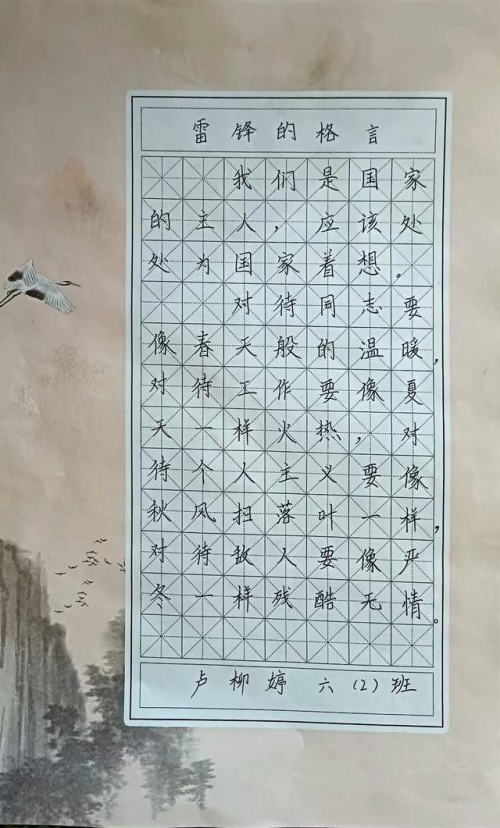 雷锋的格言
我们是国家
的主人，应该处
处为国家着想。
对待同志要
像春天般的温暖，
对待工作要像夏
天一样火热，对
待个人主义要像
秋风扫落叶一样，
对待敌人要像严
冬一样残酷无情。
卢柳婷 六（2）班